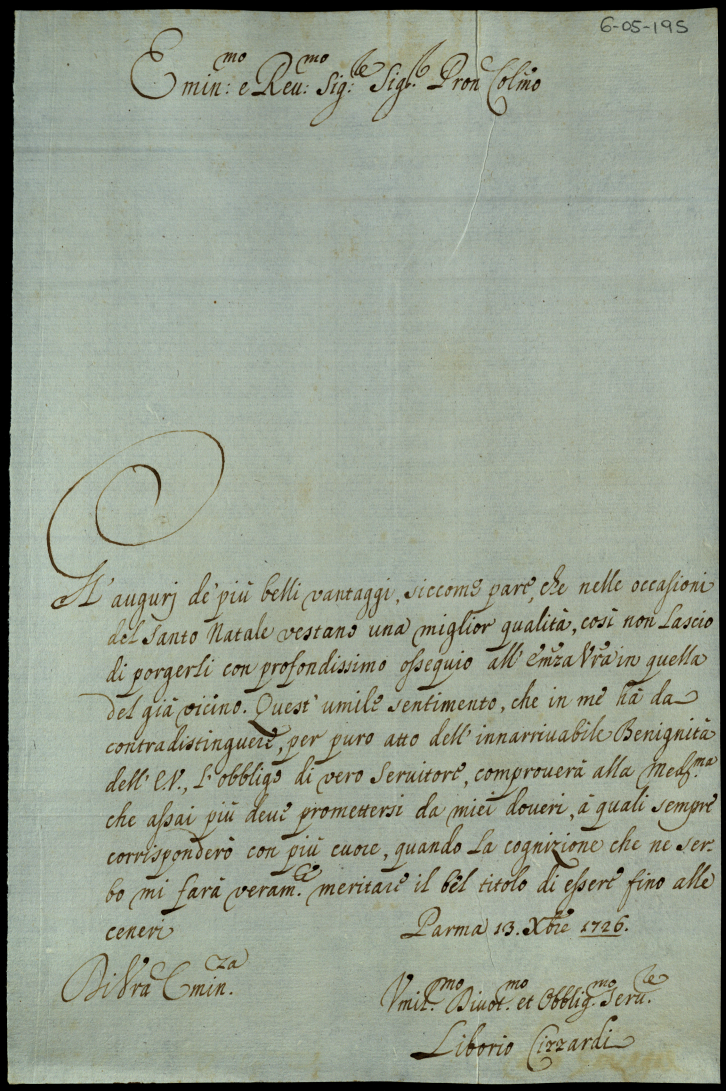 6-05-195
Emin:mo e Reu:mo Sig:re Sigr. Pron Colmo
Gl' augurj de' più belli vantaggi, siccome pare, che nelle occasioni
del Santo Natale vestano una miglior qualità, così non Lascio
di porgerli con profondissimo ossequio all' Emza Vra in quella
del già vicino. Quest' umile sentimento, che in me hà da
contradistinguere, per puro atto dell' innarriuabile Benignità
dell' E.V., L'obbligo di vero Seruitore, comprouerà alla Medma
che assai più deue promettersi da miei doueri, à quali sempre
corrisponderò con più cuore, quando La cognizione che ne ser=
bo mi farà veram.te meritare il bel titolo di essere fino alle
ceneri
Parma 13. Xbre 1726.
Di Vra Emin.za
Vmil.mo Diuot.mo et Obblig.mo Seru.re
Liborio Cizzardi